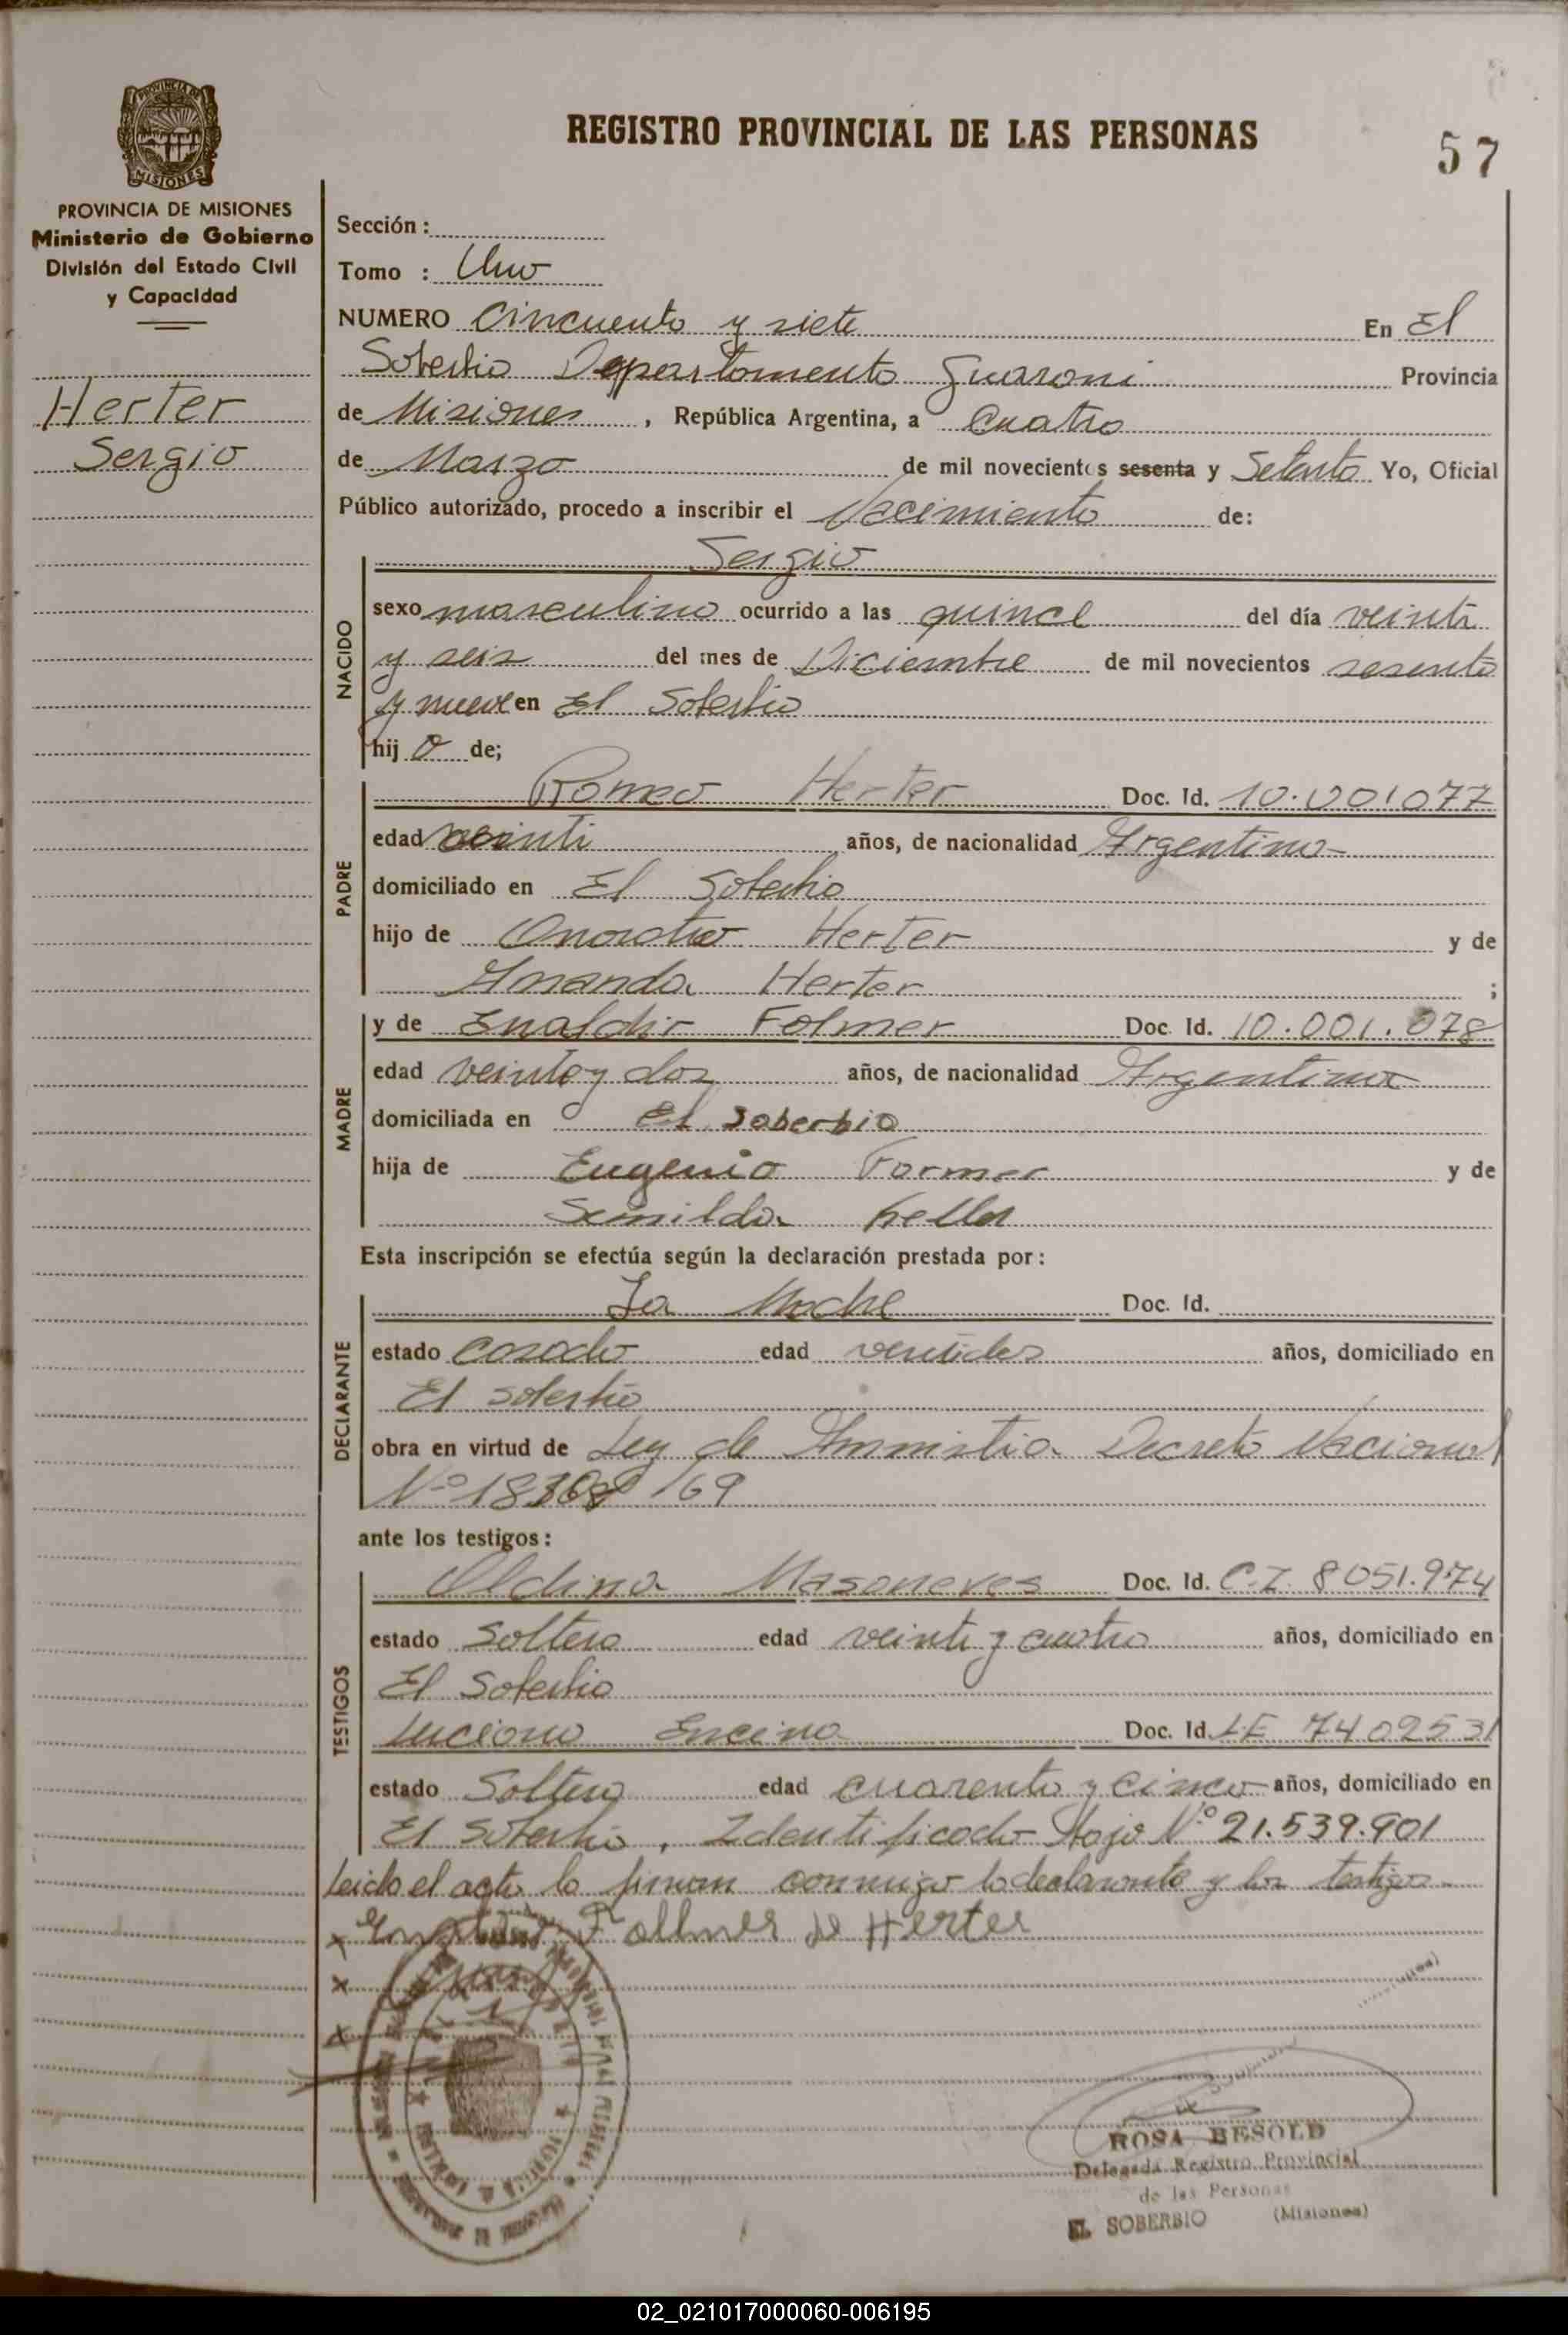 REGISTRO PROVINCIAL DE LAS PERSONAS
57
PROVINCIA DE MISIONES
MISIONES
PROVINCIA DE MISIONES
Ministerio de Gobierno
División del Estado Civil
y Capacidad
Herter
Sergio
Sección :
Tomo : Uno
NUMERO Cincuenta y siete En El
Soberbio Departamento Guarani Provincia
de Misiones , República Argentina, a Cuatro
de Marzo de mil novecientos sesenta y Setenta Yo, Oficial
Público autorizado, procedo a inscribir el Nacimiento de:
NACIDO
Sergio
sexo masculino ocurrido a las quince del día veinti
y seis del mes de Diciembre de mil novecientos sesenta
y nueve en El Soberbio
hij o de;
PADRE
Romeo Herter Doc. Id. 10.001077
edad veinti años, de nacionalidad Argentino
domiciliado en El Soberbio
hijo de Herter y de
Amanda Herter ;
MADRE
y de Enaldir Folmer Doc. Id. 10.001.078
edad veinte y dos años, de nacionalidad Argentina
domiciliada en El Soberbio
hija de Eugenio Former y de
Semilda Keller
Esta inscripción se efectúa según la declaración prestada por :
DECLARANTE
La Madre Doc. Id.
estado Casada edad ventidos años, domiciliado en
El Soberbio
obra en virtud de Ley de Amnistia Decreto Nacional
Nº /69
ante los testigos :
TESTIGOS
Masoneves Doc. Id. C.I. 8051.974
estado Soltero edad veinti y cuatro años, domiciliado en
El Soberbio
Luciano Encina Doc. Id. LE 7402531
estado Soltero edad cuarenta y cinco años, domiciliado en
El Soberbio, Identificado Hoja Nº 21.539.901
Leido el acta la firman conmigo la declarante y los testigos
x Follmer de Herter
x
x
ROSA BESOLD
Delegada Registro Provincial
de las Personas
EL SOBERBIO (Misiones)
02_021017000060-006195